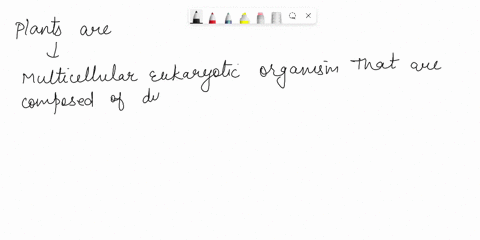 Plants are
↓
Multicellular eukaryotic organism that are
composed of di